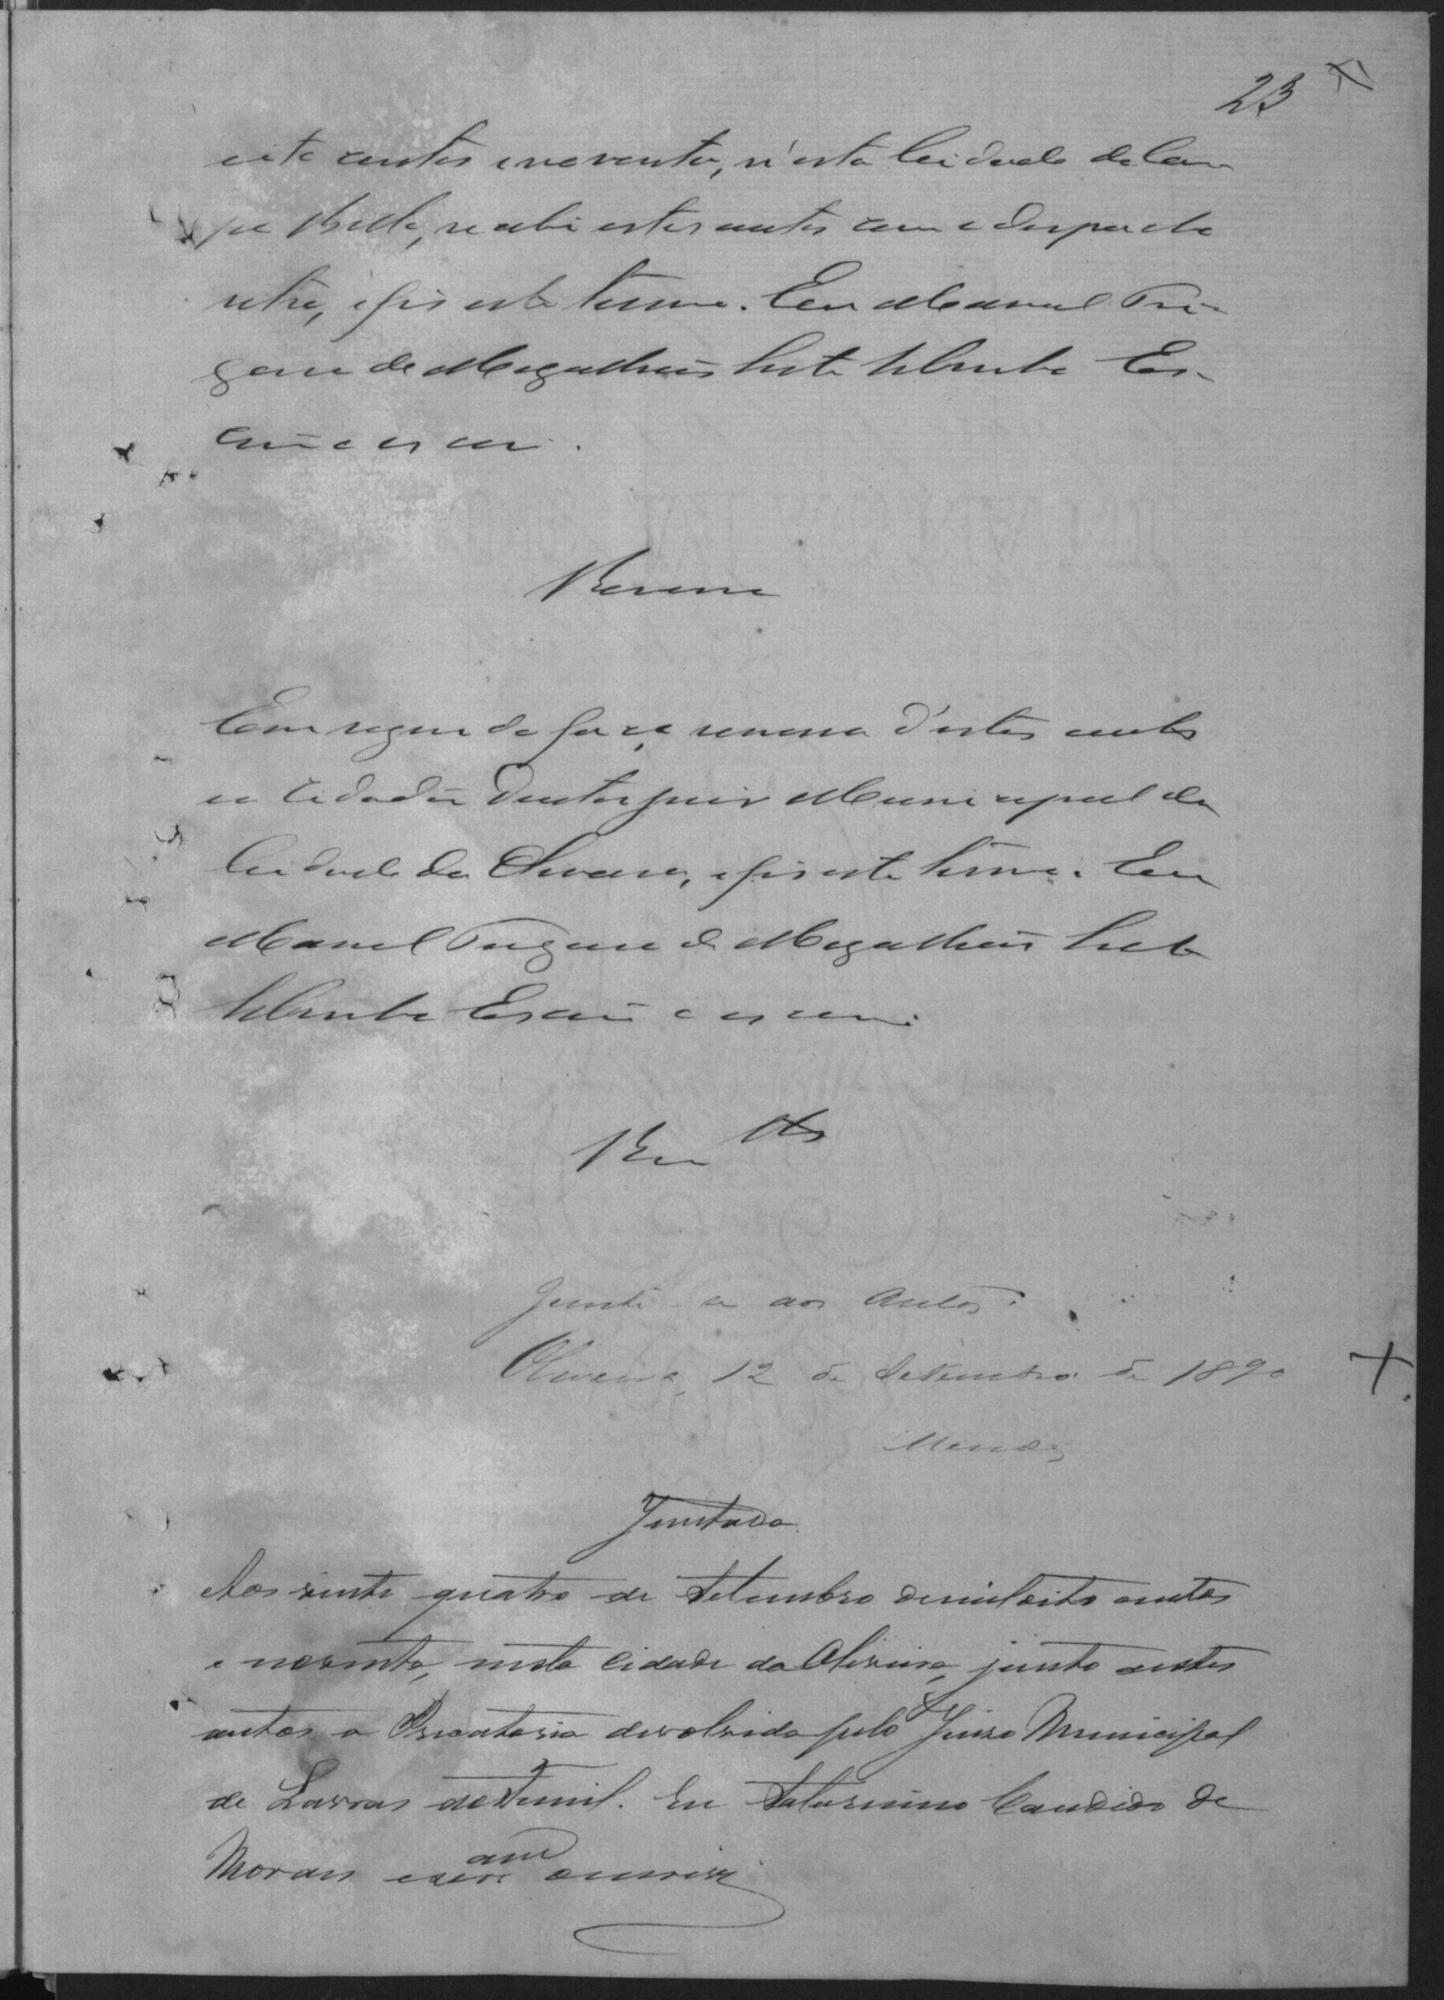 23
oito centos e noventa, n'esta Cidade de Cam
po Bello, recebi estes autos com o despacho
retro, e fiz este termo. Eu Manoel Tri-
gam de Magalhães Escri-
vão o escrevi.
Remessa
Em seguida faço remessa d'estes autos
ao Cidadão Doutor Juiz Municipal da
Cidade da Oliveira, e fiz este termo. Eu
Manoel Trigam de Magalhães
Escrivão o escrevi.
Junte-se aos autos.
Oliveira, 12 de Setembro de 1890
Mendes
Juntada
Aos vinte quatro de Setembro de mil oito centos
e noventa, nesta cidade da Oliveira, junto a estes
autos a Precatoria devolvida pelo Juizo Municipal
de Lavras do Funil. Eu Saturnino Candido de
Moraes o escrevi